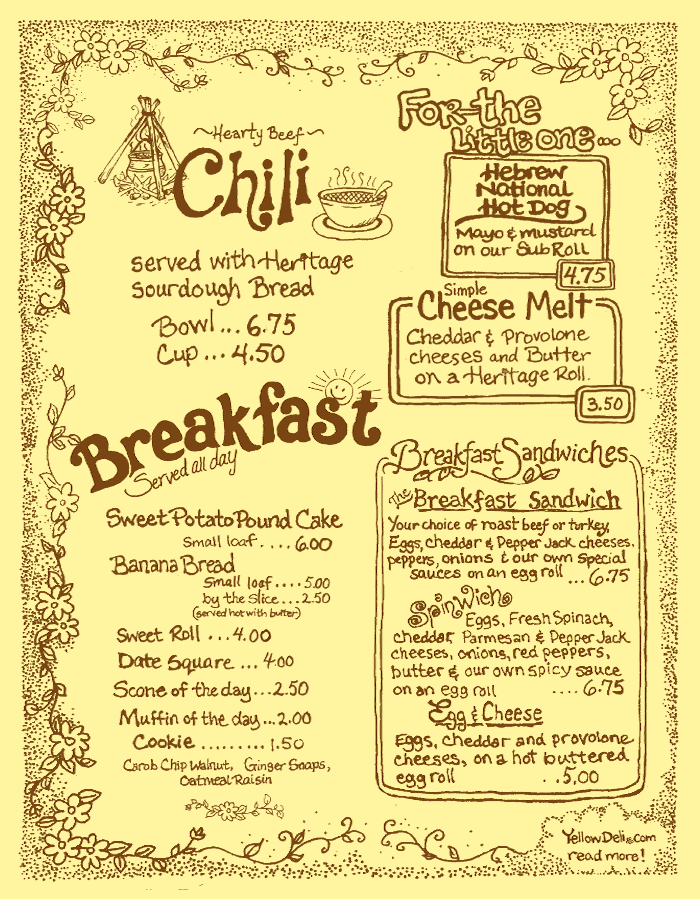 ~Hearty Beef~
Chili
served with Heritage
Sourdough Bread
Bowl... 6.75
Cup ... 4.50
For the
Little one...
Hebrew
National
Hot Dog
Mayo & mustard
on our Sub Roll
4.75
Simple
Cheese Melt
Cheddar & Provolone
cheeses and Butter
on a Heritage Roll.
3.50
Breakfast
Served all day
Sweet Potato Pound Cake
Small loaf .... 6.00
Banana Bread
Small loaf .... 5.00
by the Slice... 2.50
(served hot with butter)
Sweet Roll ... 4.00
Date Square ... 4.00
Scone of the day... 2.50
Muffin of the day... 2.00
Cookie ......... 1.50
Carob Chip Walnut, Ginger Snaps,
Oatmeal Raisin
Breakfast Sandwiches
The Breakfast Sandwich
Your choice of roast beef or turkey,
Eggs, cheddar & Pepper Jack cheeses,
peppers, onions & our own Special
sauces on an egg roll ... 6.75
Spinwich
Eggs, Fresh Spinach,
cheddar, Parmesan & Pepper Jack
cheeses, onions, red peppers,
butter & our own spicy sauce
on an egg roll .... 6.75
Egg & Cheese
Eggs, cheddar and provolone
cheeses, on a hot buttered
egg roll . .5.00
YellowDeli.com
read more!